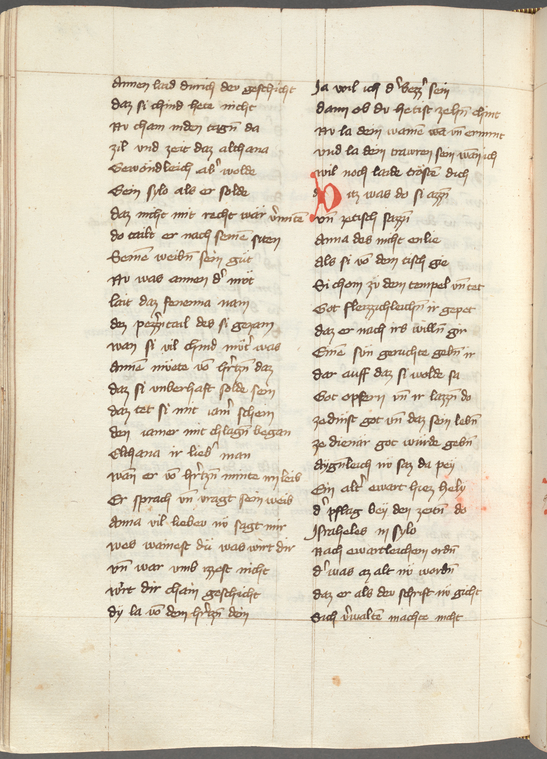 Annen laid durich der geschicht
daz si chind hete nicht
Nv cham inden tagn̄ da
zil vnd zeit daz althana
Gewondleich alß wolde
Gein sylo als er solde
daz nicht mit recht wär v̾mitē
do tailt er nach seinē siten
Seinē weibn̄ sein gut
Nv was annen d̾ möt
lait daz fenenna nam
den pezzn̄ tail des si gezam
wan si vil chind möt̾ was
Annē müete vō h̾rtzn̄ daz
daz si vnberhaft solde sein
daz tet si mit iam̾ schein
den iamer mit chlagn̄ began
Elchana ir lieb̾ man
wan er vō h̾rtzn̄ minte ir leib
Er sprach vn̄ vragt sein weib
Anna vil liebev nv sagt mir
wes wainest du was wirt dir
vn̄ war vmb izzest nicht
wirt dir chain geschicht
dy la vō dem h̾rtzn̄ dein
Ja wil ich d̾ bezz̾ sein
dann ob dv hetist zehn̄ chint
Nv la dein wainē wa vn̄ erwint
vnd la dein trawren sein wan ich
wil noch laide trösten dich
Ditz was do si azzn̄
vn̄ ze tisch sazzn̄
Anna des nicht enlie
als si vō dem tisch gie
Si chom zů dem tempel vn̄ tet
Got fleizzichleichn̄ ir gepet
daz er nach irs willn̄ gir
Einē sůn geruchte gebn̄ ir
dar auff daz si wolde sa
Got opfern vn̄ ir lazzn̄ do
ze dinist got vn̄ daz sein lebn̄
ze dienar got wurde gebn̄
Aygnleich nv saz da pey
Ein alt̾ ewart hiez hely
d̾ pflag bey den zeitn̄ do
Israheles in sylo
Nach ewartleichem ordn̄
d̾ was az alt nv wordn̄
daz er als dev schrift nv gicht
Sich v̾walten machte nicht